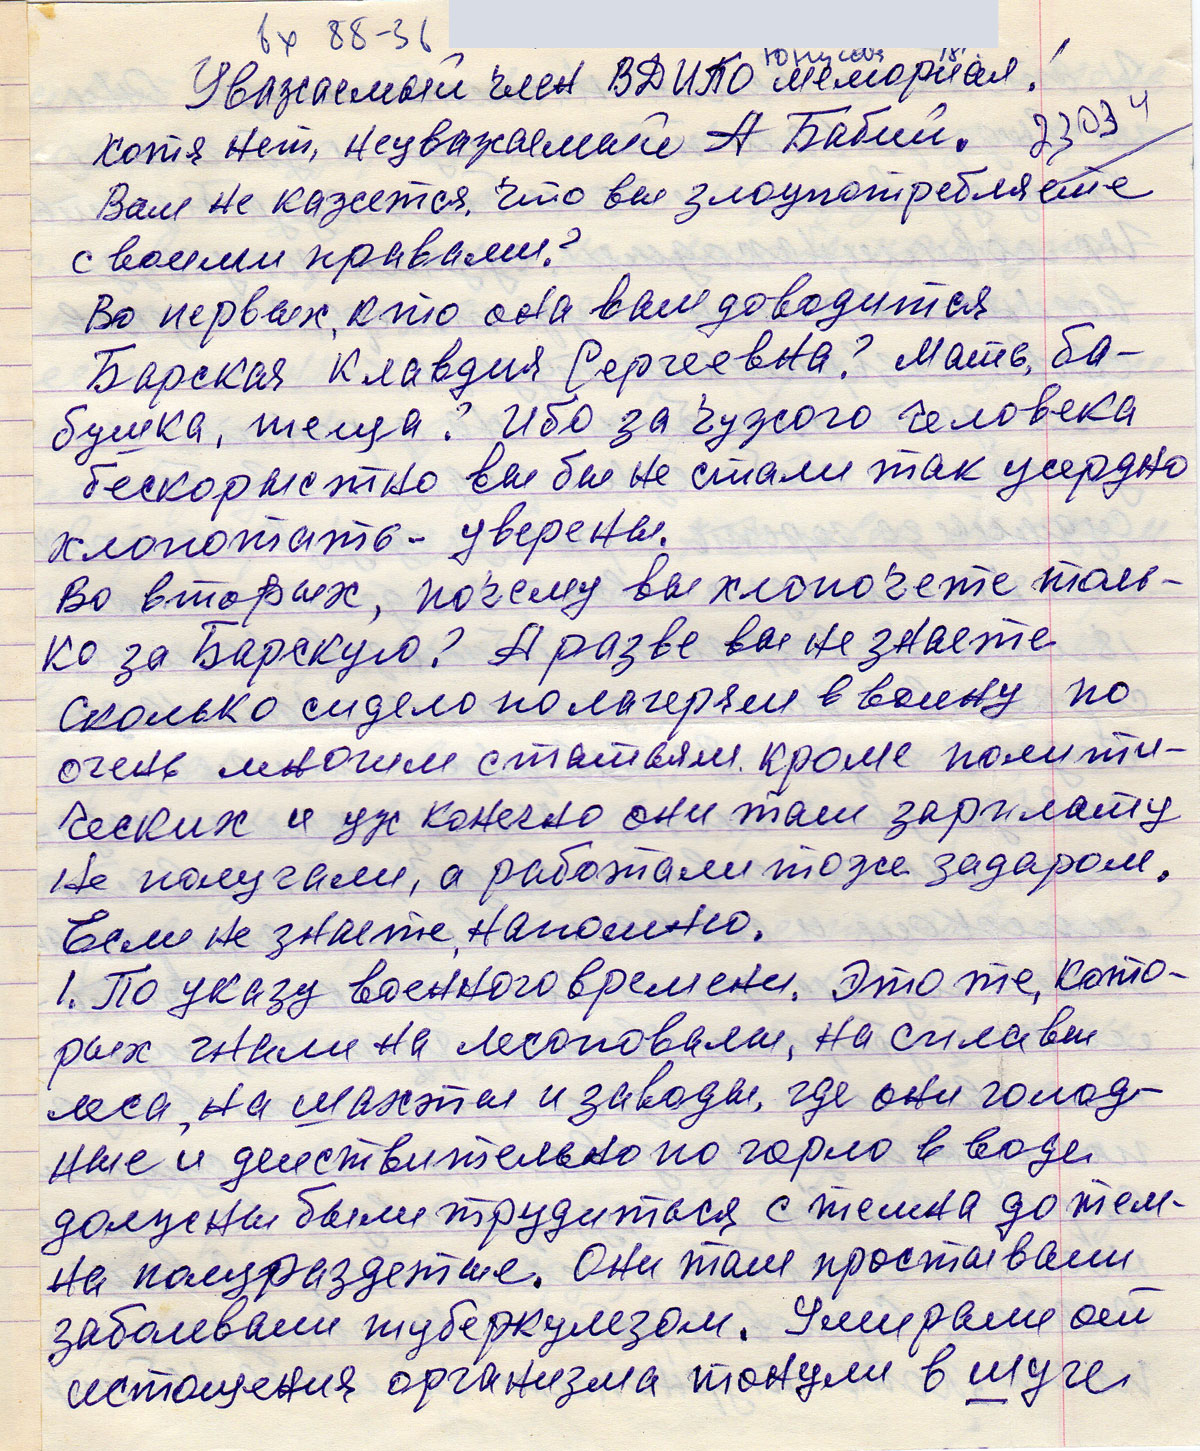 вх 88-36
Уважаемый член ВДИПО мемориал!
хотя нет, неуважаемый А Бабий. 2303
Вам не кажется, что вы злоупотребляете
своими правами?
Во первых, кто она вам доводится
Барская Клавдия Сергеевна? Мать, ба-
бушка, теща? Ибо за чужого человека
бескорыстно вы бы не стали так усердно
хлопотать - уверены.
Во вторых, почему вы хлопочете толь-
ко за Барскую? А разве вы не знаете
сколько сидело по лагерям в войну по
очень многим статьям, кроме полити-
ческих и уж конечно они там зарплату
не получали, а работали тоже задаром.
Если не знаете, напомню.
1. По указу военного времени. Это те, кото-
рых гнали на лесоповалы, на сплавы
леса, на шахты и заводы, где они голод-
ные и действительно по горло в воде
должны были трудиться с темна до тем-
на полураздетые. Они там простывали
заболевали туберкулезом. Умирали от
истощения организма тонули в шуге